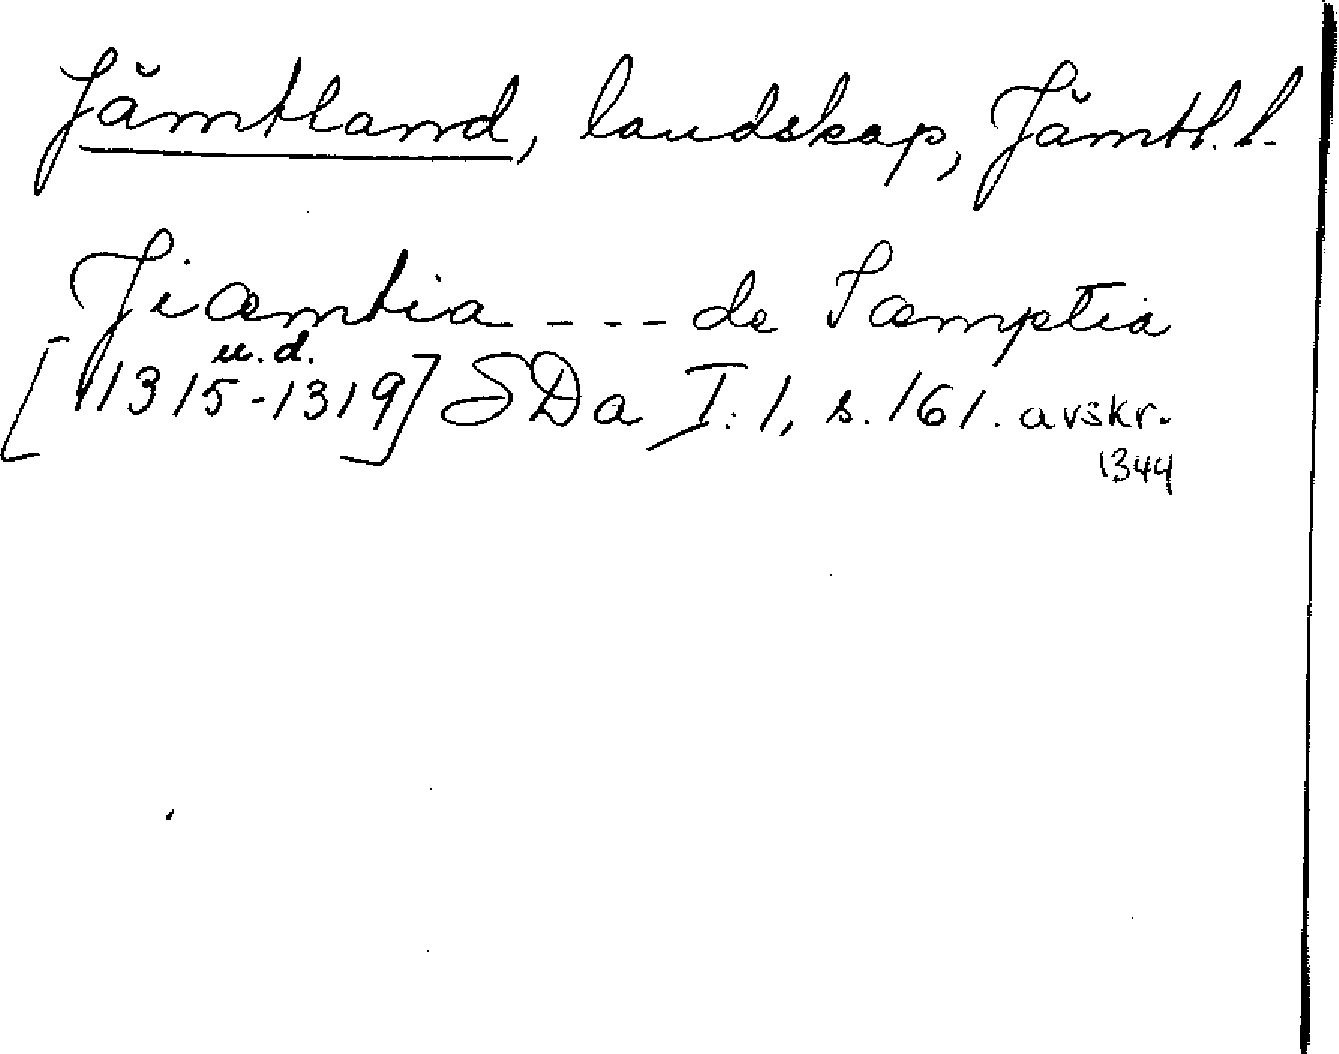 Jämtland, landskap, Jämtl.l.
Jiæmtia --- de Iæmptia
u.d.
[1315-1319] SDa I:1, s.161. avskr.
1344